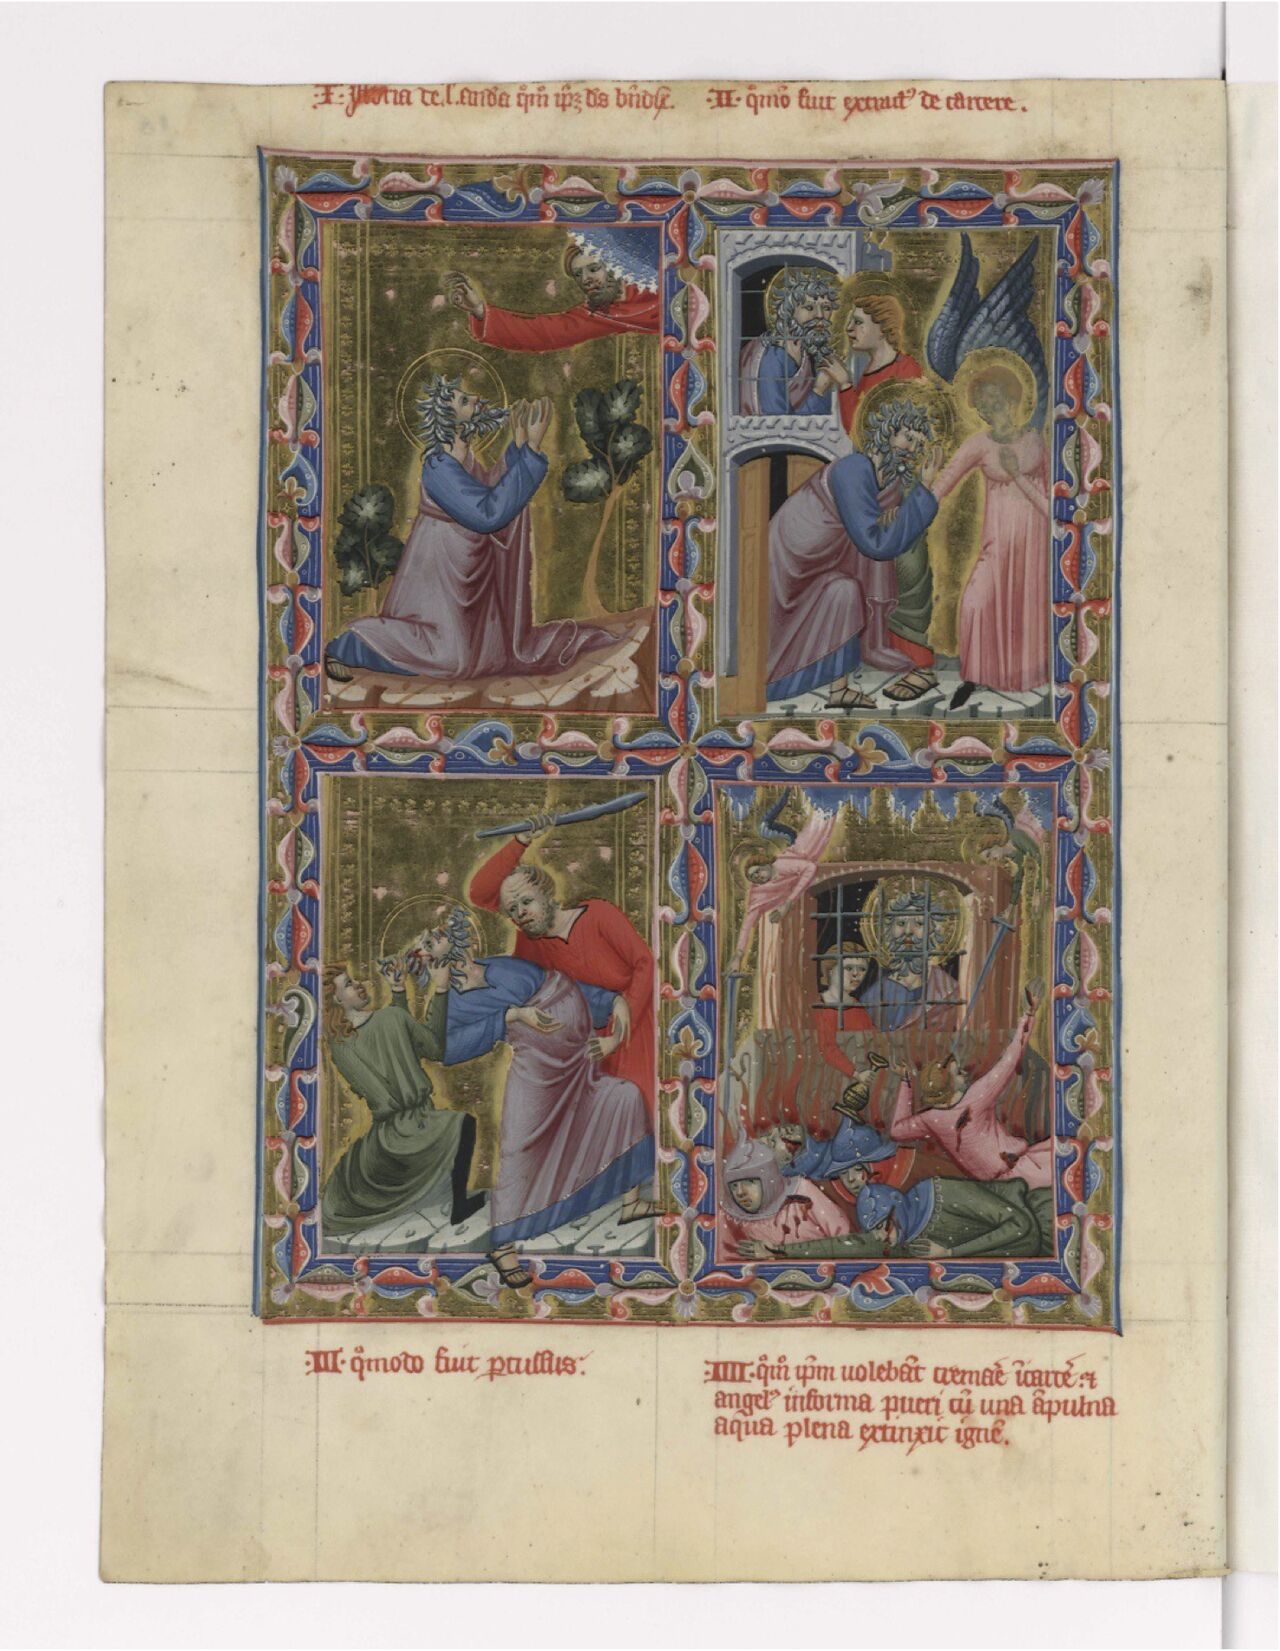 ·I· Istoria de .s. barba qm ipz ds bndix. ·II· qmo fuit extract⁹ de carcere.
·III· qmodo fuit pcussus.
·IIII· qm ipm uolebat cremare icarce: ⁊
angel⁹ in forma pueri cu una apulna
aqua plena extinxit igne.